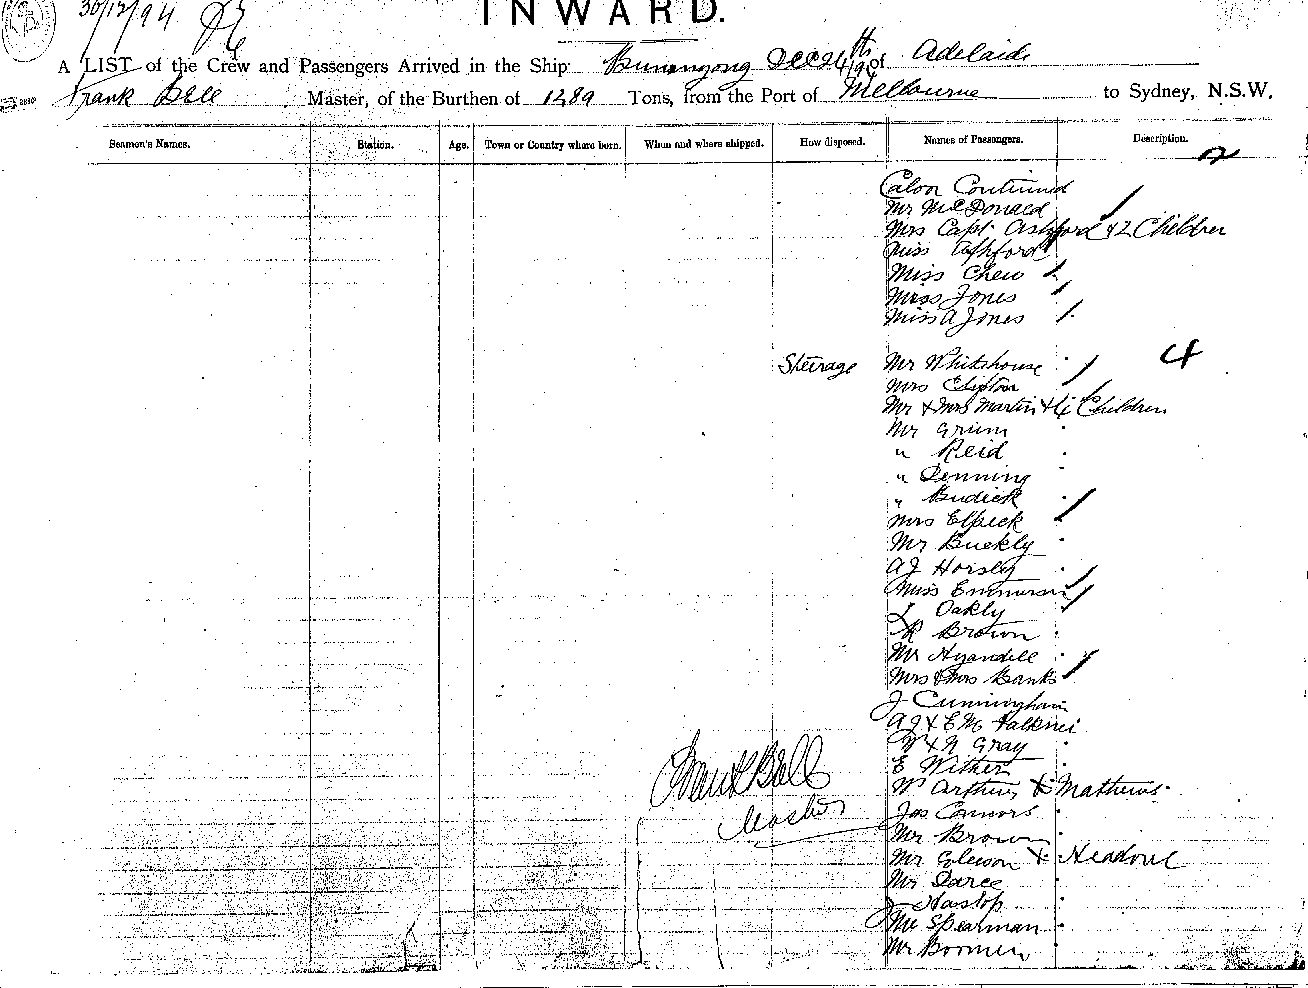 30/12/94
INWARD.
A LIST of the Crew and Passengers Arrived in the Ship Buninyong Dec 24th/94 of Adelaide
Frank Bell Master, of the Burthen of 1289 Tons, from the Port of Melbourne to Sydney, N.S.W.
Seamen's Names. Station. Age. Town or Country where born. When and where shipped. How disposed. Names of Passengers. Description.
2
Continued
Mr McDonald
Mrs Capt Ashford & 2 Children
Miss Ashford
Miss Chew
Miss Jones
Miss A Jones
4
Steerage Mr Whitehouse
Mrs Clifton
Mr & Mrs Martin & Children
Mr Grimm
" Reid
" Denning
" Budick
Mrs Elpick
Mr Buckly
AJ Horsley
Miss Emmerson
Oakly
R Brown
Mr Hyandell
Mrs & Mrs Banks
J Cunningham
AJ & E Mc
W & N Gray
E Wither
Arthur & Mathews
Jas Connors
Mr Brown
Mr Gleeson &
Mr
J
Mr Spearman
Mr Boomer
Frank Bell
Master